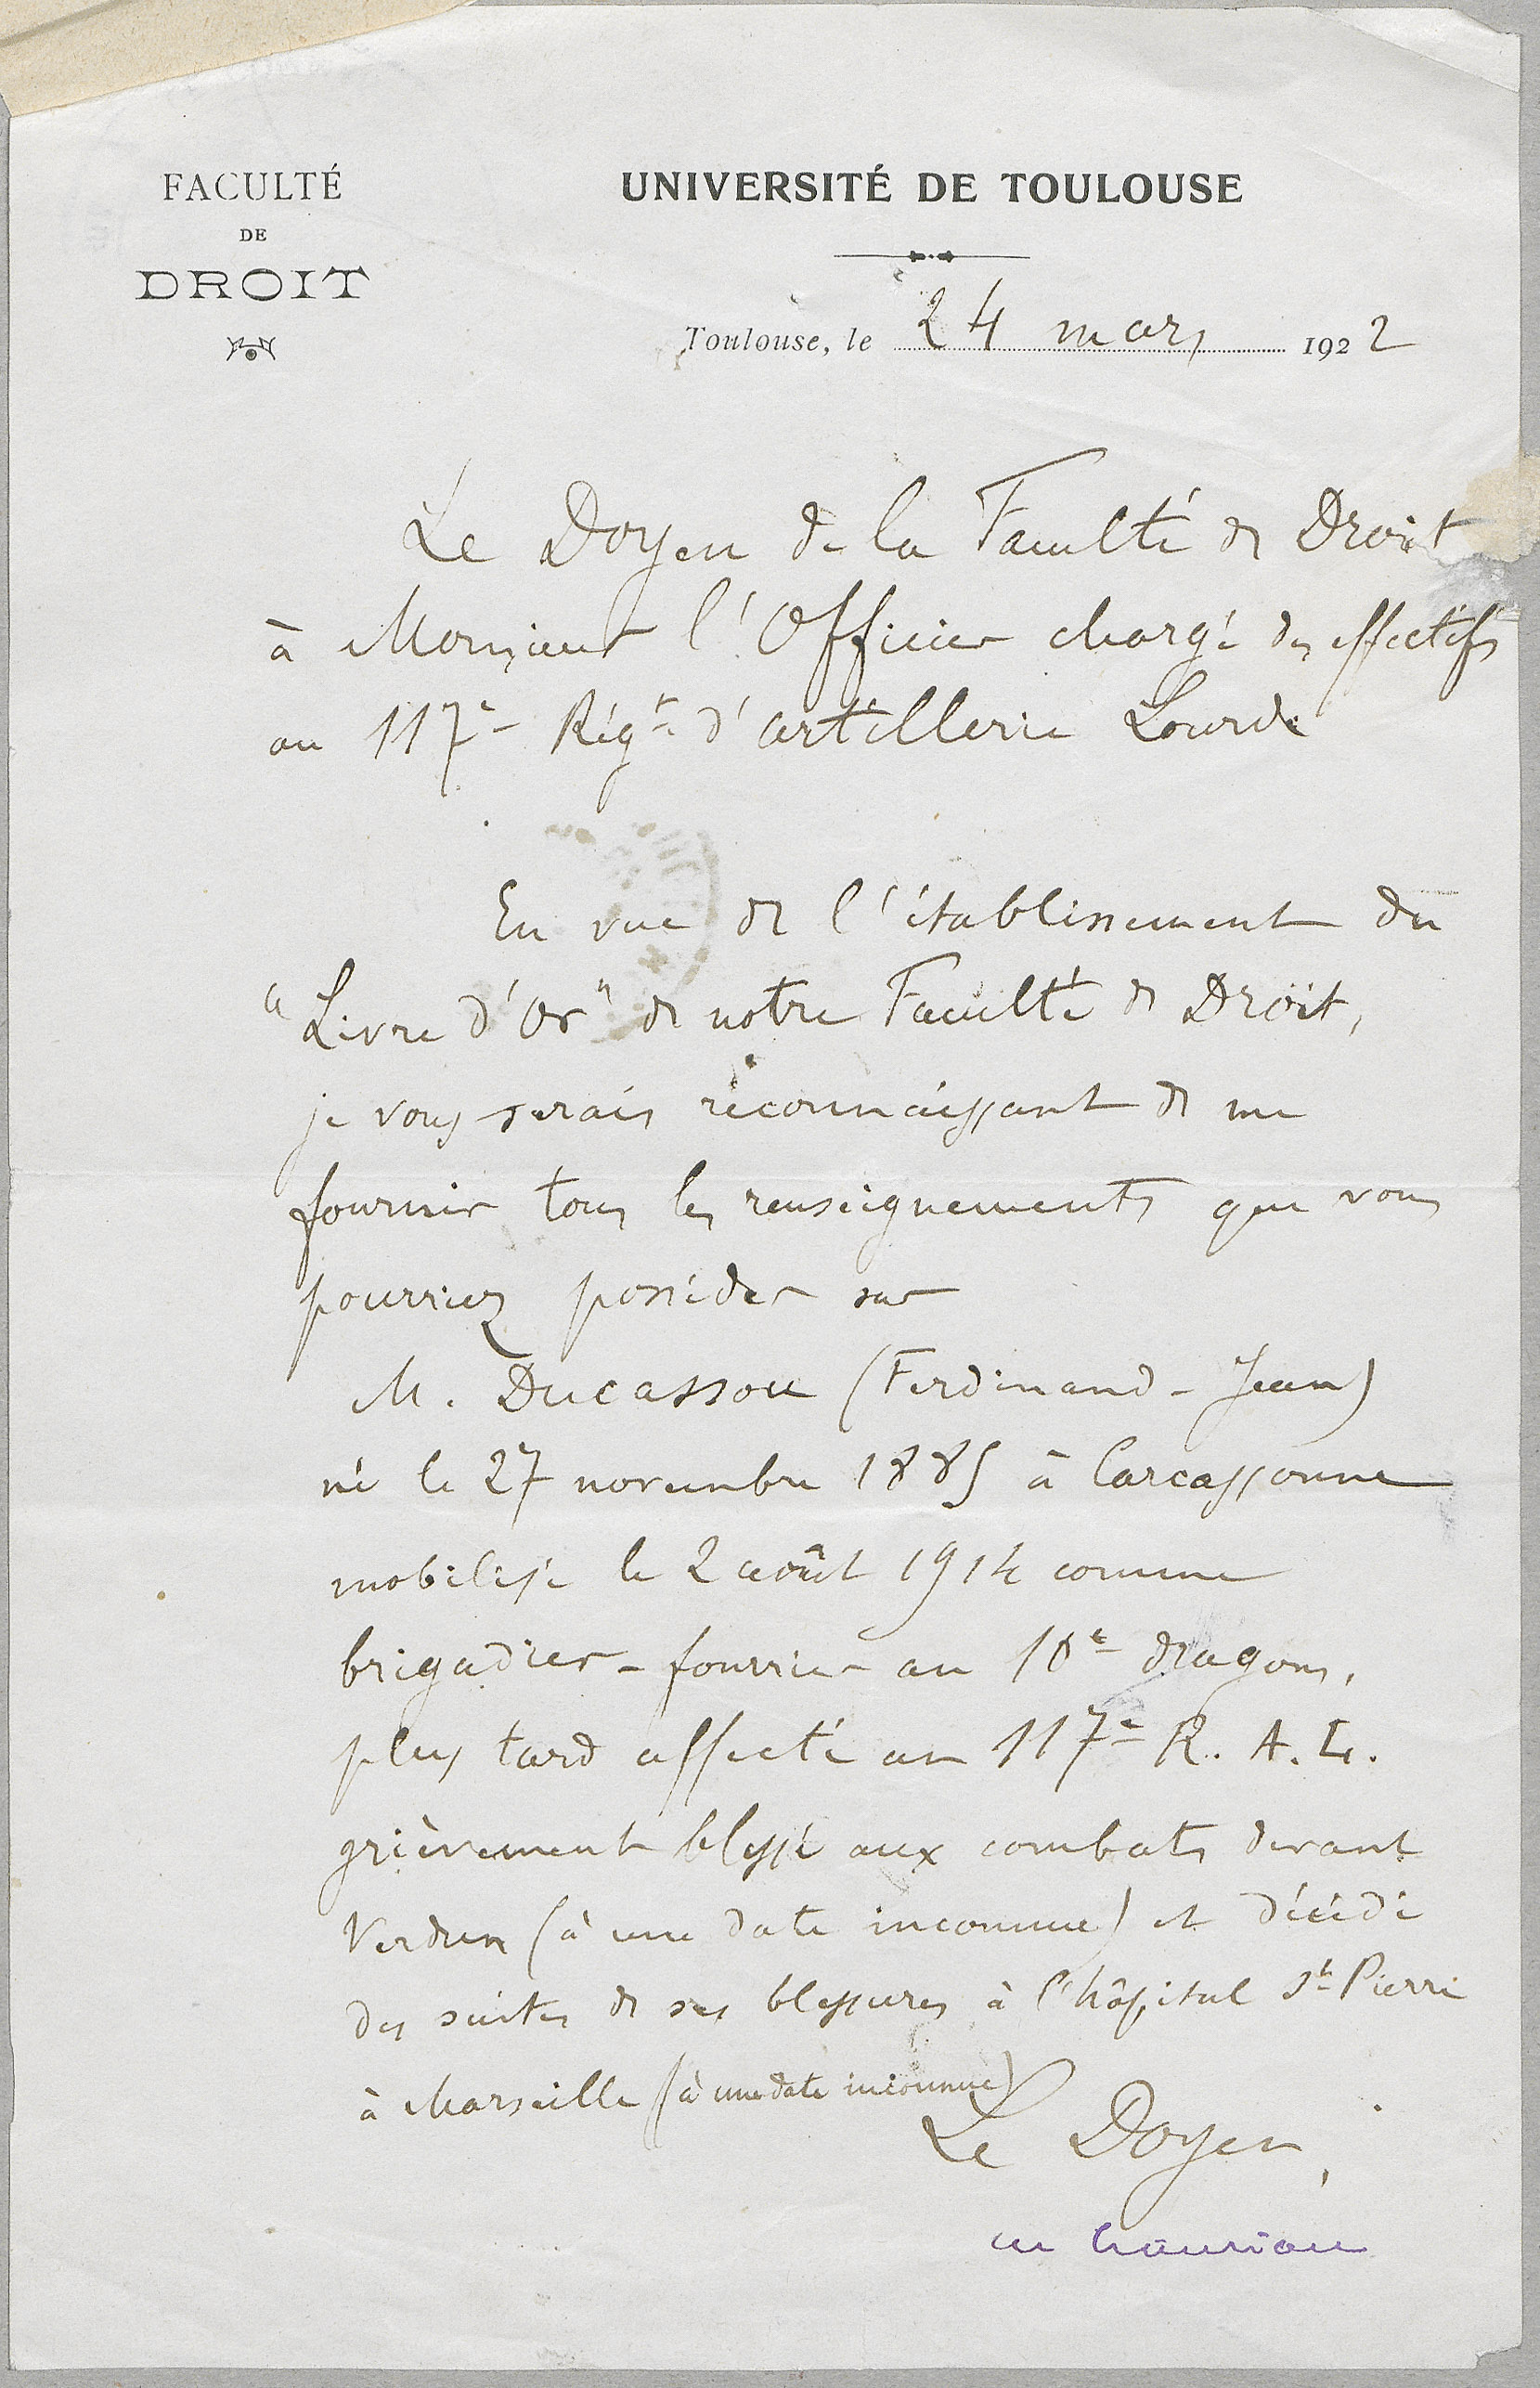 FACULTÉ
DE
DROIT
UNIVERSITÉ DE TOULOUSE
Toulouse, le 24 mars 1922
Le Doyen de la Faculté de Droit
à Monsieur l'Officier chargé des effectifs
au 117e Régt d'artillerie Lourde
En vue de l'établissement du
"Livre d'Or" de notre Faculté de Droit,
je vous serais reconnaissant de me
fournir tous les renseignements que vous
pourriez posséder sur
M. Ducassou (Ferdinand-Jean)
né le 27 novembre 1885 à Carcassonne
mobilisé le 2 août 1914 comme
brigadier-fourrier au 10e dragons,
plus tard affecté au 117e R. A. L.
grièvement blessé aux combats devant
Verdun (à une date inconnue) et décédé
des suites de ses blessures à l'hôpital St Pierre
à Marseille (à une date inconnue)
Le Doyen,
M Hauriou